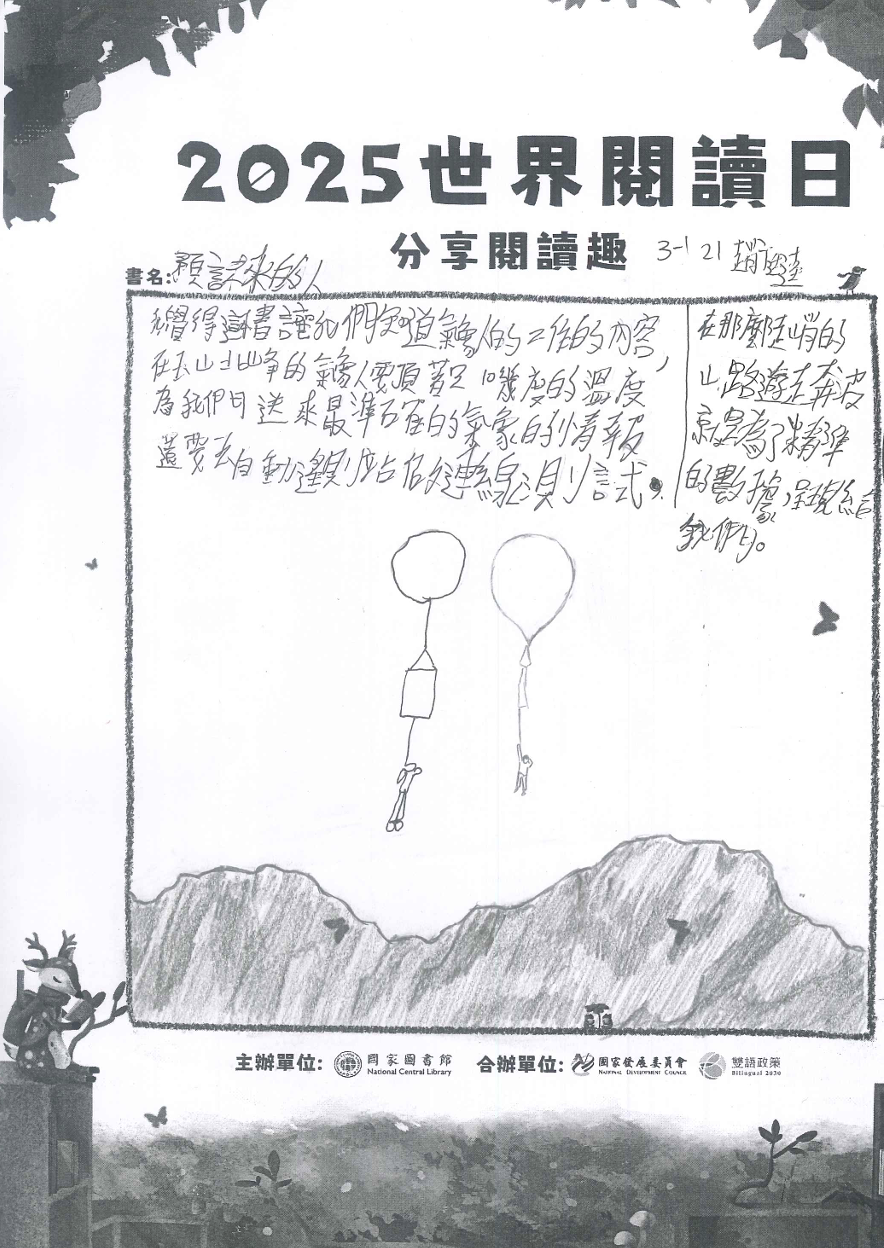 2025世界閱讀日
分享閱讀趣
3-1 21 趙
書名:預訊來的人
我覺得這本書讓我們知道氣象人的工作的內容,
在玉山北峰的氣象人要頂著足10幾度的溫度
為我們日送來最準確的氣象的情報
還要去自動測站做連線測試。
在那麼陡峭的
山路遊走奔波
就是為了精準
的數據,呈現給
我們。
主辦單位: 國家圖書館
National Central Library
合辦單位: 國家發展委員會
NATIONAL DEVELOPMENT COUNCIL
雙語政策
Bilingual 2030